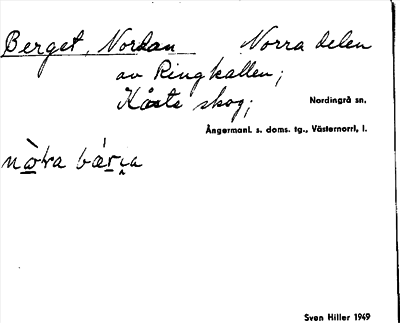 Berget, Nordan Norra delen
av Ringkallen;
Kåsta skog; Nordingrå sn.
Ångermanl. s. doms. tg., Västernorrl. l.
Sven Hiller 1949